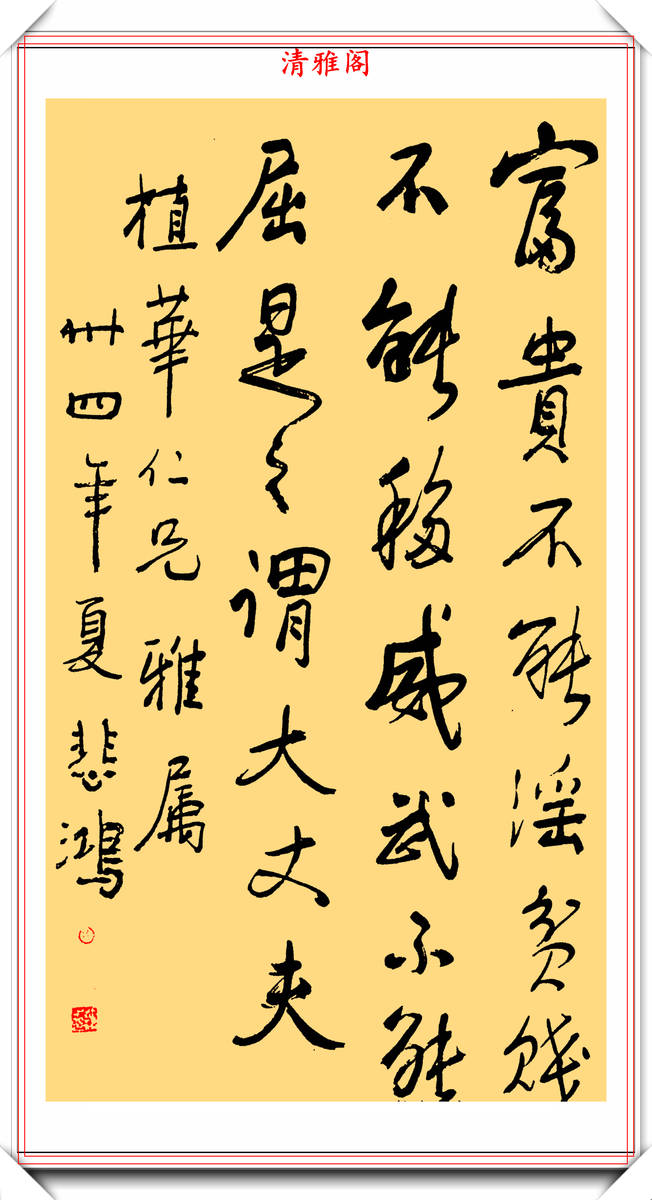 清雅阁
富貴不能淫貧賤
不能移威武不能
屈是之谓大丈夫
植華仁兄雅属
卅四年夏悲鴻